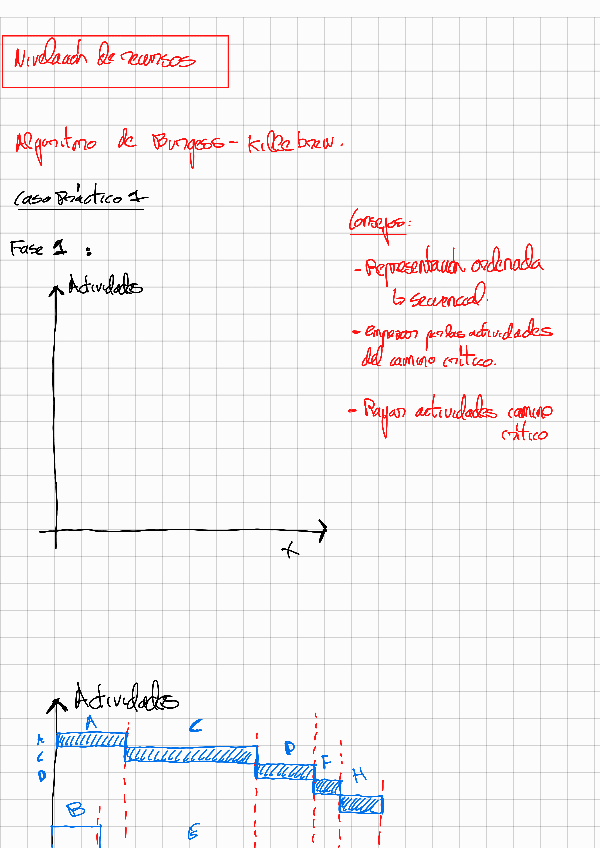 Nivelación de recursos
Algoritmo de Burgess - Killebrew.
Caso Práctico 1
Fase 1 :
Actividades
t
Consejos:
- Representación ordenada
↳ secuencial.
- empezar por las actividades
del camino crítico.
- Rayar actividades camino
crítico
Actividades
A
C
A
C
D
F
D
H
B
E